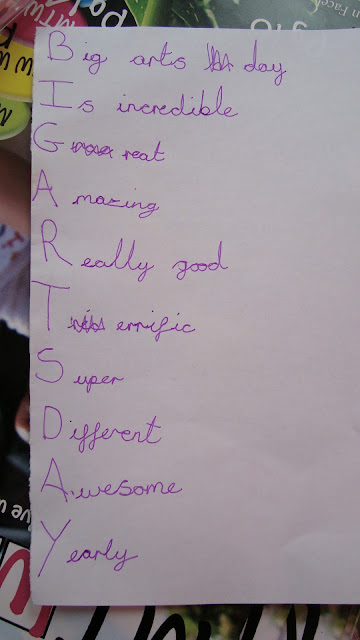 Big arts day
Is incredible
Great
Amazing
Really good
Terrific
Super
Different
Awesome
Yearly